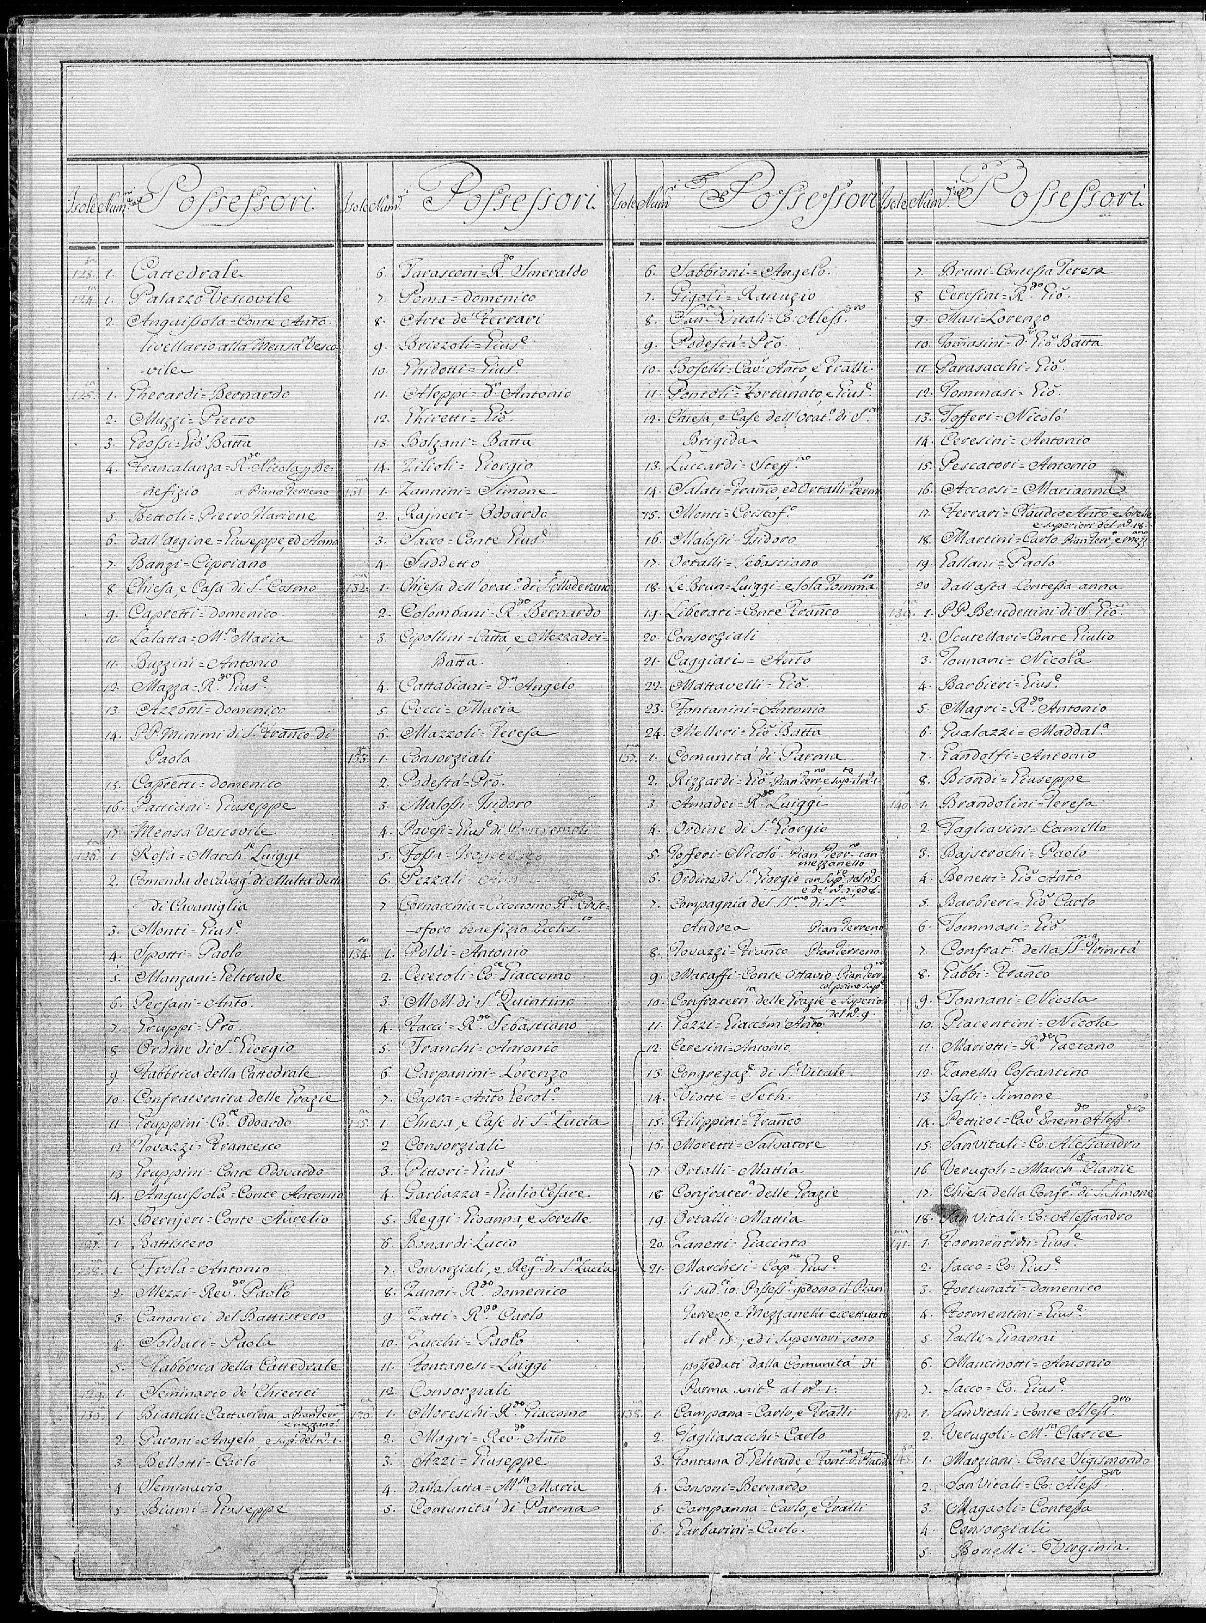 Isole Num.ri Possessori. Isole Num.ri Possessori. Isole Num.ri Possessori Isole Num.ri Possessori.
123. 1. Cattedrale
124. 1. Palazzo Vescovile
2. Anguissola = Conte Anto.
livellario alla Mensa Vesco
vile
125. 1. Gherardi = Bernardo
2. Muzzi = Pietro
3. Grossi = Gio Batta
4. Francalanza = R.do Nicola p Be-
nefizio a Piano Terreno
5. Bettoli = Pietro
6. Dall'Argine = Giuseppe, ed
7. Banzi = Cipriano
8 Chiesa, e Casa di S. Cosmo
9. Capretti = Domenico
10. Lalatta = M.sa Maria
11. Buzzini = Antonio
12. Mazza = R.do Gius.e
13. Azzoni = Domenico
14. PP Minimi di S. Franco di
Paola
15. Capretti = Domenico
16. Patticini = Giuseppe
17. Mensa Vescovile
126. 1 Rosa = March.se Luiggi
2. Comenda de Cavag.i di Malta detta
di Cavaniglia
3. Monti = Gius.e
4. Spotti = Paolo
5. Manzani = Geltrude
6. Persani = Anto.
7. Gruppi = Pro.
8 Ordine di S. Giorgio
9 Fabbrica della Cattedrale
10 Confraternita delle Grazie
11 Gruppini = Co. Odoardo
12 Tovazzi = Francesco
13 Gruppini = Conte Odoardo
14. Anguissola = Conte Antonio
15. Bernieri = Conte Aurelio
127. 1 Battistero
128. 1 Frela = Antonio
2. Mezzi = Rev.do Paolo
3 Canonici del Battistero
4 Soldati = Paola
5. Fabbrica della Cattedrale
129. 1. Seminario de' Chierici
130. 1 Bianchi = Cattarina a Pian Terr.
e mezzano
2. Pavoni = Angelo, e Sup. del n. 1.
3 Bellotti = Carlo
4 Seminario
5. Biumi = Giuseppe
6 Tarasconi = R.do Smeraldo
7. Poma = Domenico
8. Arte de' Ferrari
9. Briezoli = Gius.e
10. Ghidotti = Gius.e
11. Aleppi = D.n Antonio
12. Ghiretti = Gio.
13 Bolzani = Batta
14. Zilioli = Giorgio
131. 1. Zannini = Simone
2. Rajneri = Odoardo
3. Sacco = Conte Gius.e
4 Suddetto
132. 1. Chiesa dell'Orat.o di S. Moderano
2. Colombani = R.do Bernardo
3. Cipollini = Catta, e Mezzadri =
Batta.
4. Cattabiani = D.n Angelo
5 Cocci = Maria
6 Mazzoli = Teresa
133. 1 Consorziali
2. Podestà = Pro.
3 Malossi = Isidoro
4 Pavesi = Gius.e di
5. Fossa = Francesco
6 Pezzali
7 Cornacchia = Economo R.do Crist=
oforo benefizio Eccles.co
134. 1. Poldi = Antonio
2 Ceretoli = Co. Giacomo
3 MoM di S. Quintino
4 Tacci = R.do Sebastiano
5. Franchi = Antonio
6 Carpanini = Lorenzo
7. Capra = Anto Gerol.o
135. 1 Chiesa, e Case di S.a Lucia
2 Consorziali
3. Pittori = Gius.e
4 Garbazza = Giulio Cesare.
5. Reggi = Gioanna, e Sorelle
6 Bonardi Lucio
7. Consorziali, e Reg.ri di S.a Lucia
8. Zanoi = R.do Domenico
9 Zatti = R.do Carlo
10. Zucchi = Paolo
11. Fontanesi = Luiggi
12. Consorziali
136. 1. Moreschi = R.do Giacomo
2. Magri = Rev.do Anto
3 Azzi = Giuseppe
4. Dalla Latta = M.sa Maria
5. Comunità di Parma
6. Sabbioni = Angelo.
7. Gigoli = Ranuzio
8. San Vitali = Co. Aless.dro
9. Podestà = Pro.
10. Boselli = Cav. Anto, e Fralli
11. Pontoli = Fortunato, e Gius.e
12. Chiesa, e Case dell'Orat.o di S.ta
Brigida
13. Luccardi = Steff.no
14. Salati = Franco, ed Ortalli
15. Monti = Cristof.o
16. Malossi = Isidoro
17. Ortalli = Sebastiano
18. Le Brun = Luiggi, e Sola Tomm.so
19. Liberati = Conte Franco
20. Consorziali
21. Caggiati = Anto
22. Mattavelli = Gio.
23. Fontanini = Antonio
24. Melleri = Gio Batta
137. 1. Comunità di Parma
2. Rizzardi = Gio Pian Terr. e Sup. del n. 1
3. Amadei = R.do Luiggi
4. Ordine di S. Giorgio
5. Tofferi = Nicolò Pian Terr.no con
mezzanello
6. Ordine di S. Giorgio con Sup. del n. 5.
e de' n. 7. ed 8.
7. Compagnia del SS.mo di S.
Andrea Pian Terreno
8. Tovazzi = Franco Pian Terreno
9. Maraffi = Conte Ottavio Pian Terr.
col primo Sup.
10. Confratern. delle Grazie e Superio
del n. 9.
11. Gazzi = Giacom' Anto.
12. Ceresini = Antonio.
13. Congregaz.e di S. Vitale
14. Viotti = Seth.
15. Filippini = Franco
16. Moretti = Salvatore
17. Ortalli = Mattia
18 Confrater.a delle Grazie
19. Ortalli = Mattia
20. Zanetti = Giacinto
21. Marchesi = Cap. Gius.e
li sud.i 10. Possess.i godono il Pian
Terreno, e Mezzanelli eccettuato
al n. 13., ed i Superiori sono
posseduti dalla Comunità di
Parma unit.e al n. 1.
138. 1. Campana = Carlo, e Fralli
2. Tagliasacchi = Carlo
3. Fontana D. Geltrude e
4. Consoni = Bernardo
5. Campanna = Carlo, e Fralli
6. Garbarini = Carlo.
7. Bruni = Contessa Teresa
8 Ceresini = R.do Gio.
9. Masi = Lorenzo
10. Tommasini = D. Gio. Batta
11 Parasacchi = Gio.
12. Tommasi = Gio.
13. Tofferi = Nicolò
14. Ceresini = Antonio
15. Pescatori = Antonio
16. Accorsi = Marianna
17. Ferrari = Claudio Anto e Sorelle
e superiori del n. 18.
18. Martini = Carlo Pian Terr. e mezz.
19. Pallani = Paolo
20 Dall'Asta = Contessa Anna
139. 1. PP Benedettini di S. Gio.
2. Scutellari = Conte Giulio
3. Tonnani = Nicola
4. Barbieri = Gius.e
5. Magri = R.do Antonio
6. Gualazzi = Maddal.a
7. Gandolfi = Antonio
8. Biondi = Giuseppe
140. 1. Brandolini = Teresa
2. Tagliavini = Camillo
3. Bajstrochi = Paolo
4. Benetti = Gio. Anto
5. Barbieri = Gio. Carlo
6. Tommasi = Gio.
7. Confrat. della SS. Trinità
8. Gabbi = Franco
9. Tonnani = Nicola
10. Piacentini = Nicola
11. Mariotti = R.do Gaetano
12. Zanella Costantino
13 Sassi = Simone
14. Petticoi = Cav.
15. Sanvitali = Co. Alessandro
16 Verugoli = March.a Clarice
17. Chiesa della Confr. di S. Simone
18. San Vitali = Co. Alessandro
141. 1. Formentini = Gius.e
2. Sacco = Co. Gius.e
3. Fortunati = Domenico
4. Formentini = Gius.e
5. Galli = Gioanni
6. Mancinotti = Antonio
7. Sacco = Co. Gius.e
142. 1. Sanvitali = Conte Aless.dro
2. Verugoli = M.sa Clarice
143. 1. Marziani = Conte Sigismondo
2. San Vitali = Co. Aless.dro
3. Magaoli = Contessa
4 Consorziali
5. Bonelli = Virginia.